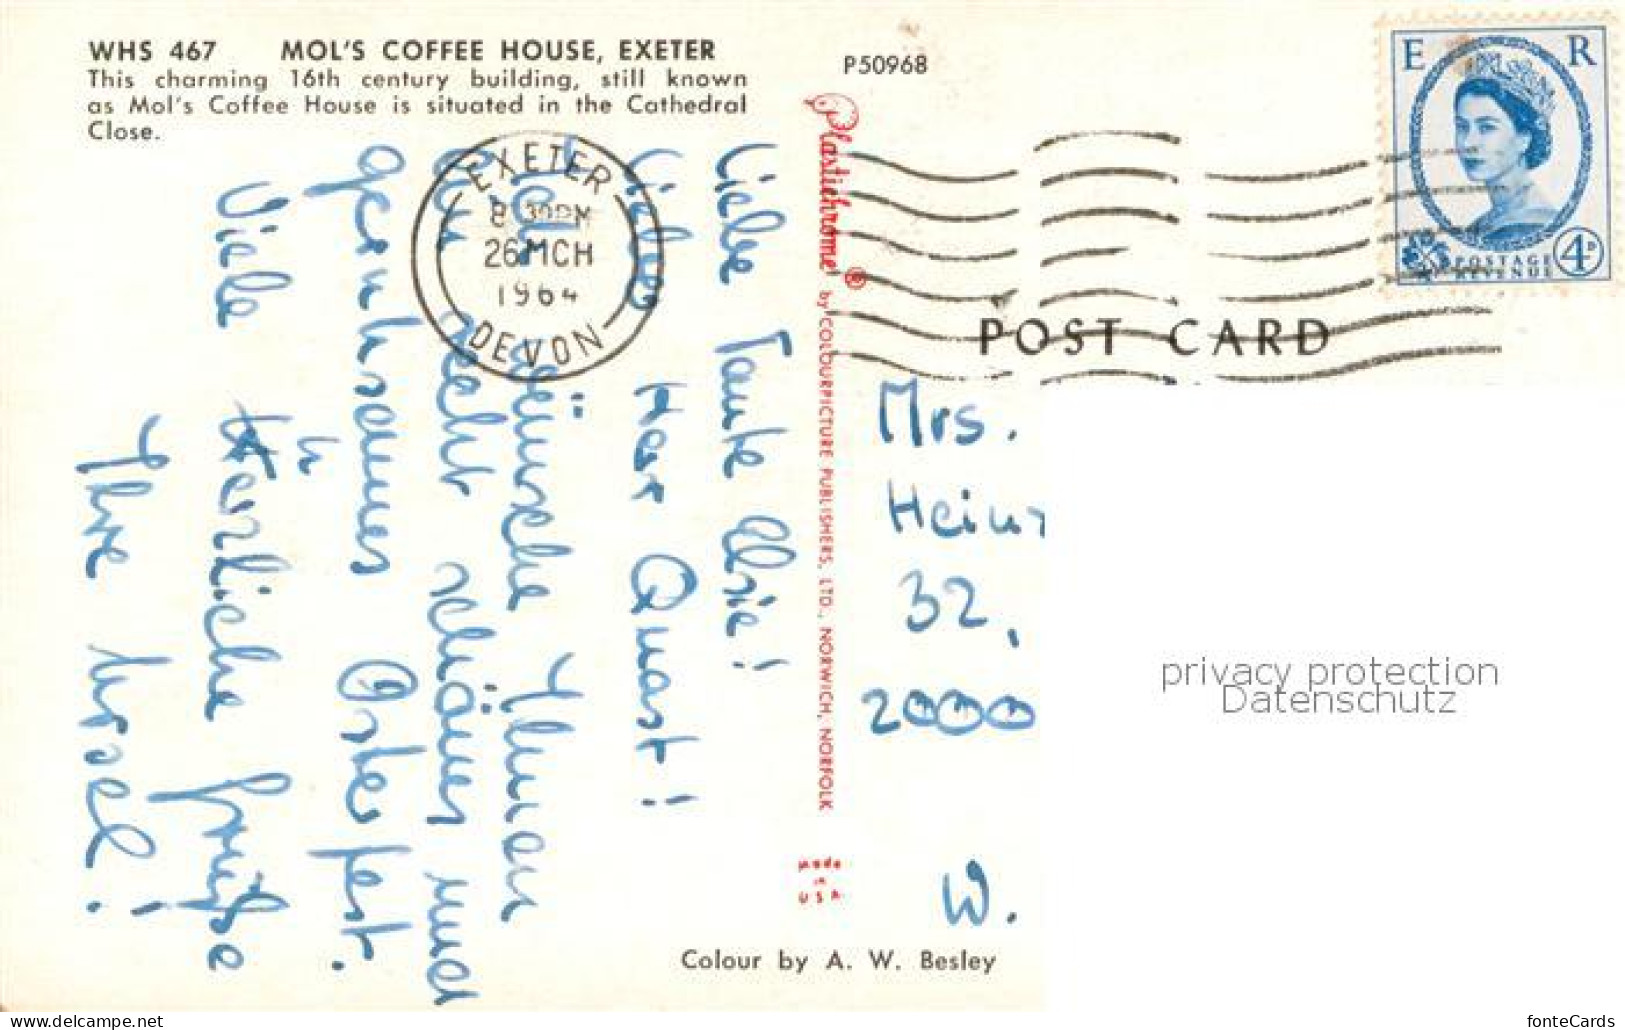 WHS 467 MOL'S COFFEE HOUSE, EXETER
This charming 16th century building, still known
as Mol's Coffee House is situated in the Cathedral
Close.
P50968
EXETER
8 30PM
26 MCH
1964
DEVON
E R
POSTAGE
REVENUE
4D
POST CARD
Plastichrome ® by COLOURPICTURE PUBLISHERS, LTD., NORWICH, NORFOLK
Made
in
USA
Liebe Tante Elsie!
Lieber Herr Quast!
Ich wünsche Ihnen
ein recht schönes und
geruhsames Osterfest.
Viele herzliche Grüße
Ihre Ursel!
Mrs.
Hein
32,
2000
W.
Colour by A. W. Besley
privacy protection
Datenschutz
www.delcampe.net
fonteCards